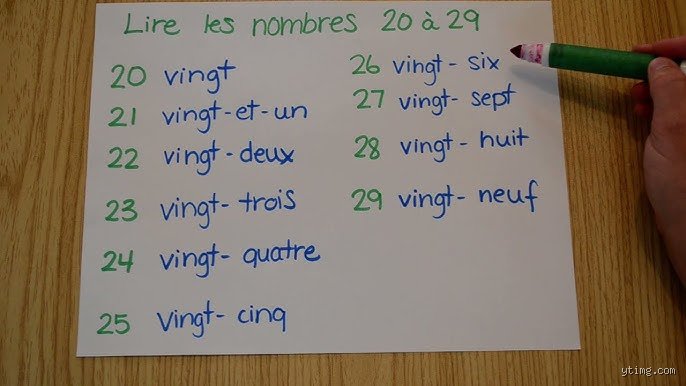 Lire les nombres 20 à 29
20 vingt
21 vingt-et-un
22 vingt-deux
23 vingt-trois
24 vingt-quatre
25 Vingt-cinq
26 vingt-six
27 vingt-sept
28 vingt-huit
29 vingt-neuf
ytimg.com